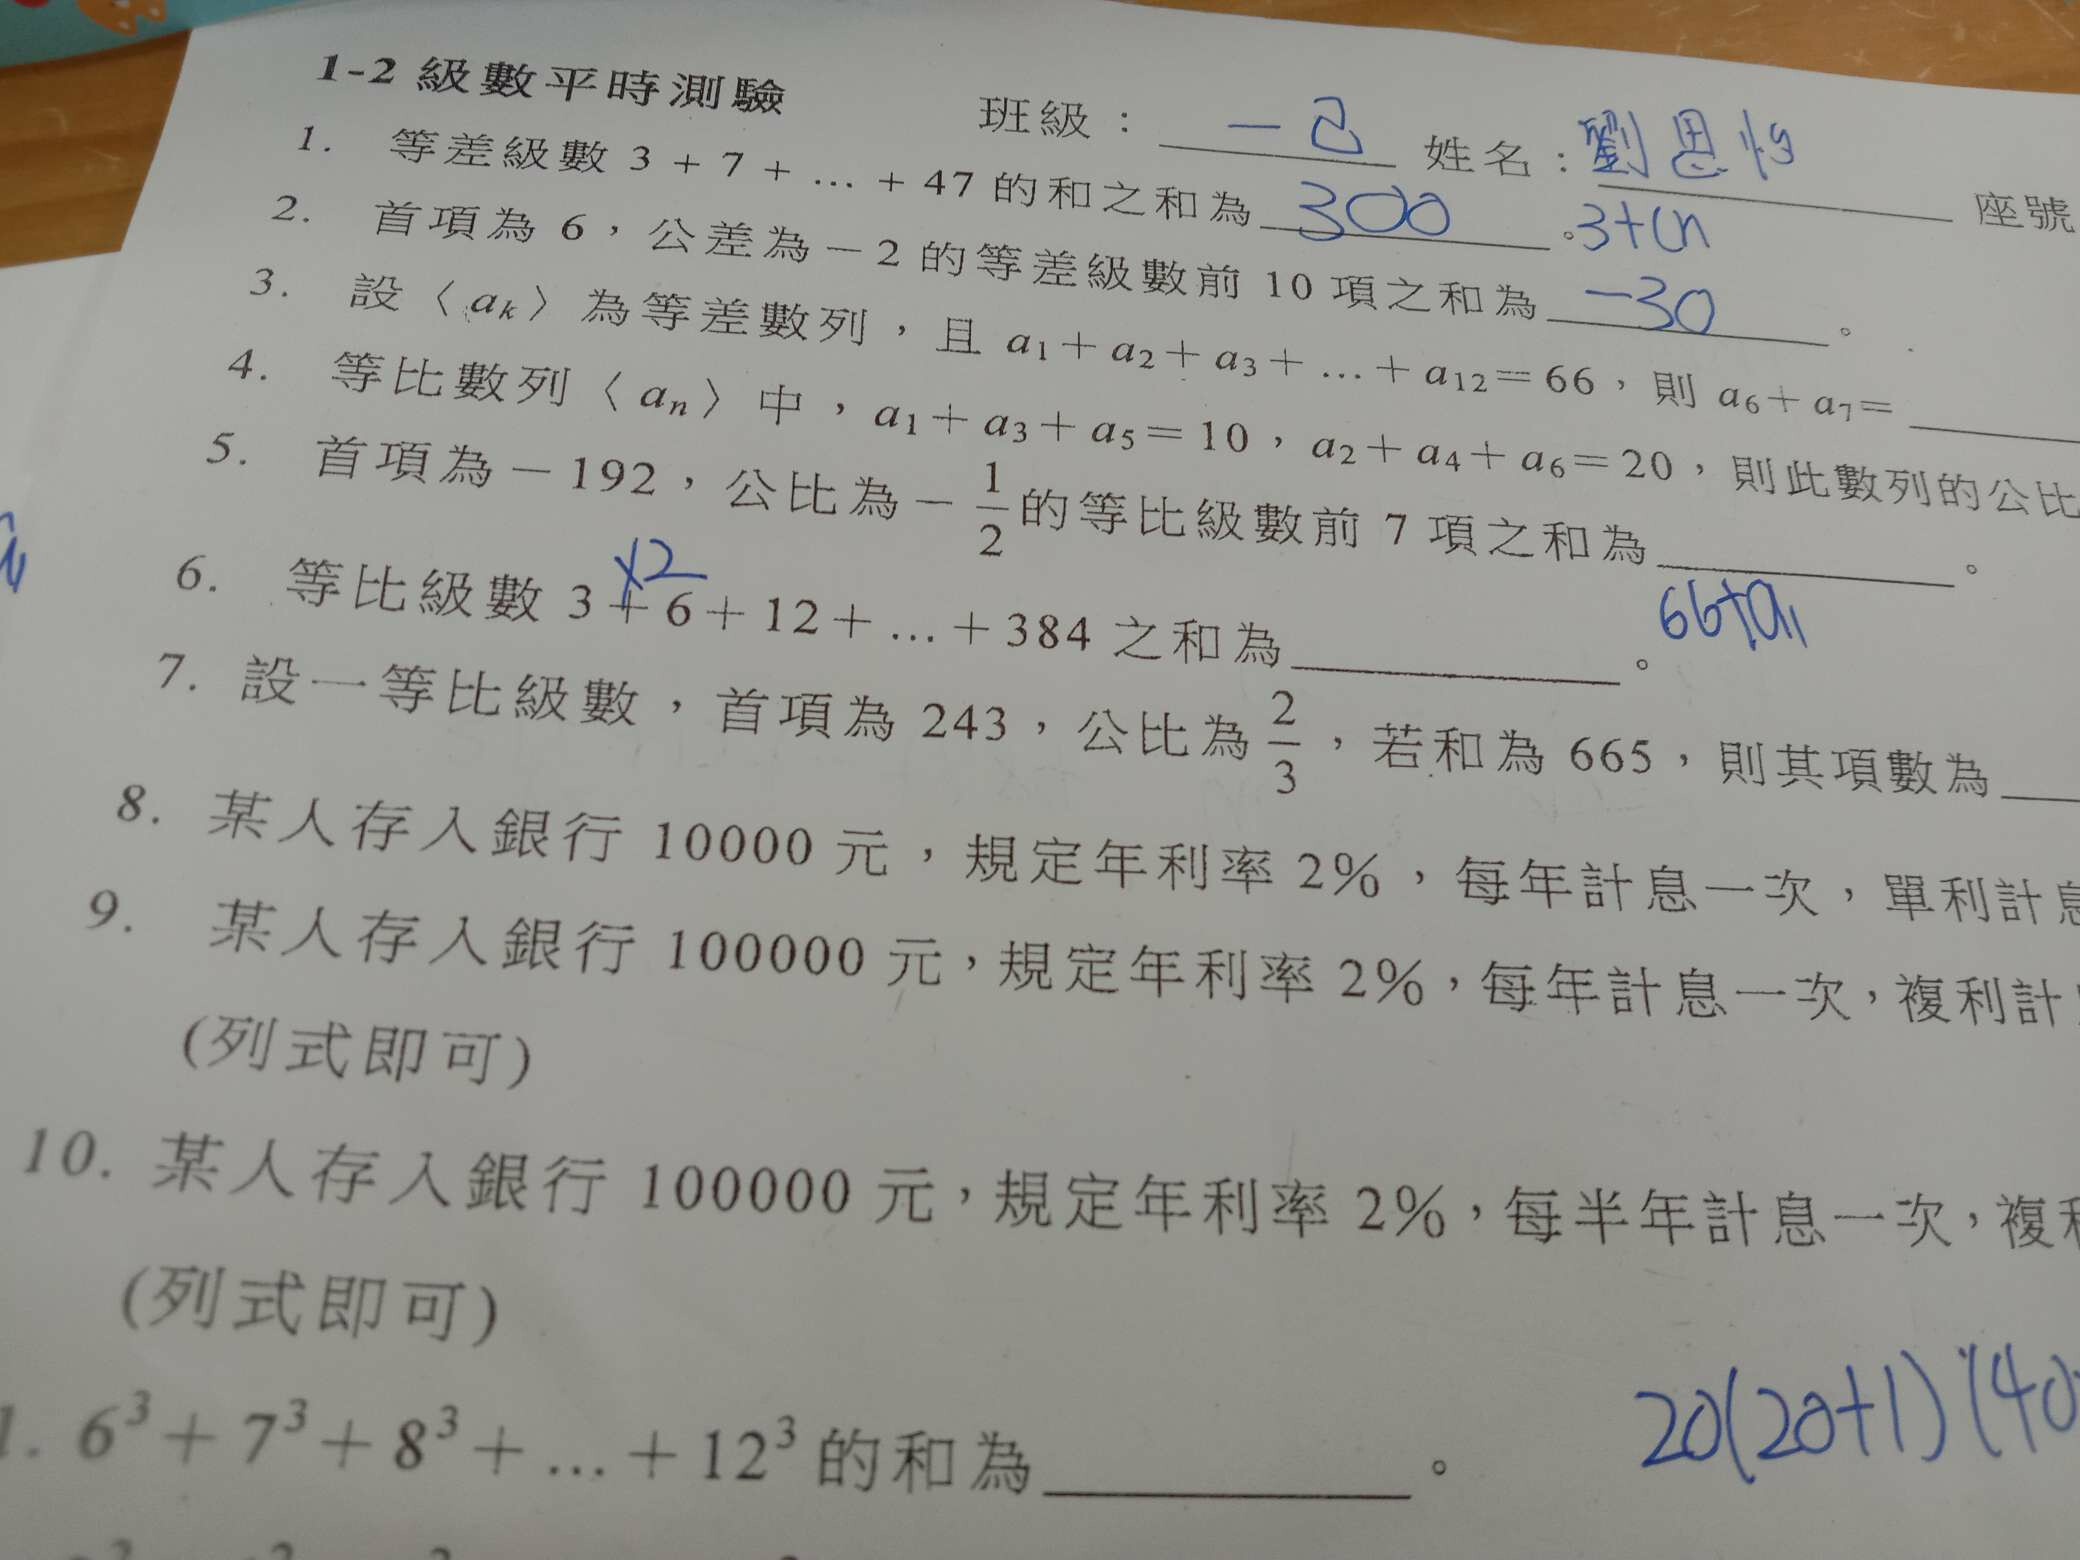 1-2 級數平時測驗 班級： 一己 姓名：劉恩怡 座號
1. 等差級數 3 + 7 + … + 47 的和之和為 300 。3+(n
2. 首項為 6，公差為－2 的等差級數前 10 項之和為 -30 。
3. 設〈ak〉為等差數列，且 a1＋a2＋a3＋…＋a12＝66，則 a6＋a7＝
4. 等比數列〈an〉中，a1＋a3＋a5＝10，a2＋a4＋a6＝20，則此數列的公比
5. 首項為－192，公比為－1/2 的等比級數前 7 項之和為 。
x2
66+a11
6. 等比級數 3＋6＋12＋…＋384 之和為 。
7. 設一等比級數，首項為 243，公比為 2/3，若和為 665，則其項數為
8. 某人存入銀行 10000 元，規定年利率 2%，每年計息一次，單利計息
9. 某人存入銀行 100000 元，規定年利率 2%，每年計息一次，複利計
(列式即可)
10. 某人存入銀行 100000 元，規定年利率 2%，每半年計息一次，複利
(列式即可)
20(20+1)(40
1. 6³＋7³＋8³＋…＋12³ 的和為 。